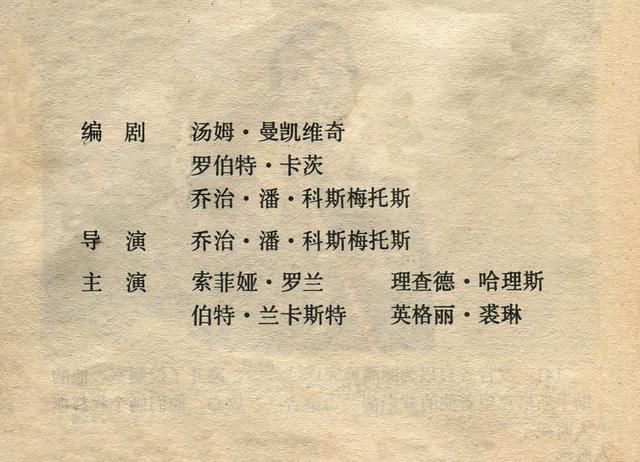 编 剧 汤姆·曼凯维奇
罗伯特·卡茨
乔治·潘·科斯梅托斯
导 演 乔治·潘·科斯梅托斯
主 演 索菲娅·罗兰 理查德·哈理斯
伯特·兰卡斯特 英格丽·裘琳